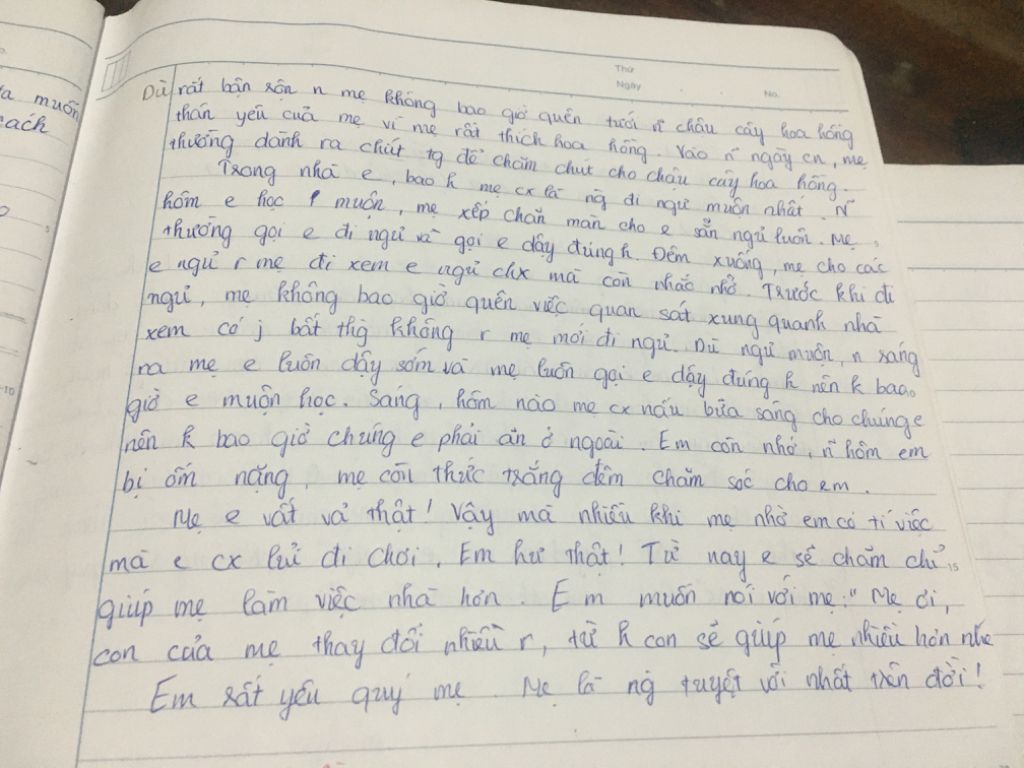 a muốn
cách
Thứ
Ngày
No.
Dù rất bận rộn n mẹ không bao giờ quên tưới n̄ chậu cây hoa hồng
thân yêu của mẹ vì mẹ rất thích hoa hồng. Vào n̄ ngày cn, mẹ
thường dành ra chút tg để chăm chút cho chậu cây hoa hồng.
Trong nhà e, bao h mẹ cx là ng đi ngủ muộn nhất. N̄
hôm e học muộn, mẹ xếp chăn màn cho e sẵn ngủ luôn. Mẹ
thường gọi e đi ngủ và gọi e dậy đúng h. Đêm xuống, mẹ cho các
e ngủ r mẹ đi xem e ngủ chx mà còn nhắc nhở. Trước khi đi
ngủ, mẹ không bao giờ quên việc quan sát xung quanh nhà
xem có j bất thg không r mẹ mới đi ngủ. Dù ngủ muộn, n sáng
ra mẹ e luôn dậy sớm và mẹ luôn gọi e dậy đúng h nên k bao
giờ e muộn học. Sáng, hôm nào mẹ cx nấu bữa sáng cho chúng e
nên k bao giờ chúng e phải ăn ở ngoài. Em còn nhớ, n̄ hôm em
bị ốm nặng, mẹ còn thức trắng đêm chăm sóc cho em.
Mẹ e vất vả thật! Vậy mà nhiều khi mẹ nhờ em có tí việc
mà e cx lủi đi chơi. Em hư thật! Từ nay e sẽ chăm chỉ
giúp mẹ làm việc nhà hơn. Em muốn nói với mẹ: "Mẹ ơi,
con của mẹ thay đổi nhiều r, từ h con sẽ giúp mẹ nhiều hơn nhé
Em rất yêu quý mẹ. Mẹ là ng tuyệt vời nhất trên đời!